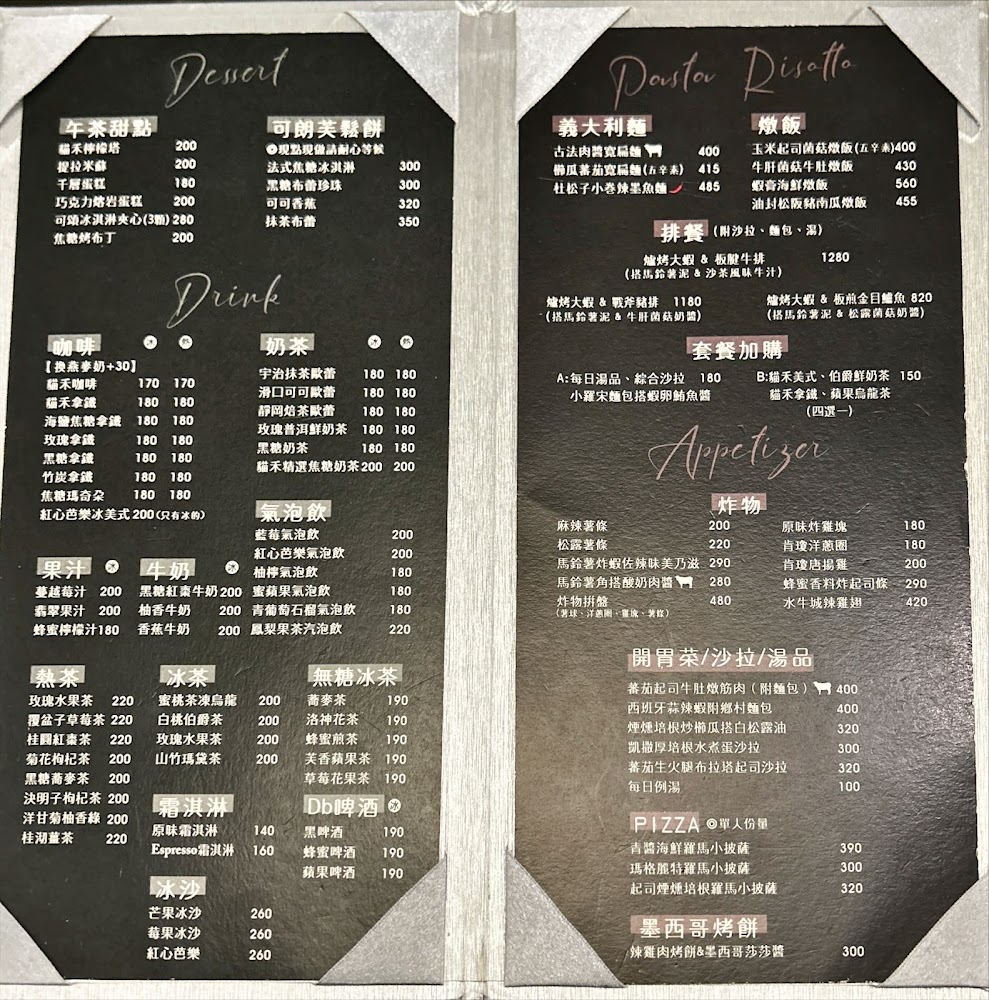 Dessert
午茶甜點
貓禾檸檬塔 200
提拉米蘇 200
千層蛋糕 180
巧克力熔岩蛋糕 200
可頌冰淇淋夾心(3顆) 280
焦糖烤布丁 200
可朗芙鬆餅
現點現做請耐心等候
法式焦糖冰淇淋 300
黑糖布蕾珍珠 300
可可香蕉 320
抹茶布蕾 350
Drink
咖啡 冰 熱
【換燕麥奶+30】
貓禾咖啡 170 170
貓禾拿鐵 180 180
海鹽焦糖拿鐵 180 180
玫瑰拿鐵 180 180
黑糖拿鐵 180 180
竹炭拿鐵 180 180
焦糖瑪奇朵 180 180
紅心芭樂冰美式 200 (只有冰的)
奶茶 冰 熱
宇治抹茶歐蕾 180 180
滑口可可歐蕾 180 180
靜岡焙茶歐蕾 180 180
玫瑰普洱鮮奶茶 180 180
黑糖奶茶 180 180
貓禾精選焦糖奶茶 200 200
氣泡飲
藍莓氣泡飲 200
紅心芭樂氣泡飲 200
柚檸氣泡飲 180
蜜蘋果氣泡飲 180
青葡萄石榴氣泡飲 180
鳳梨果茶汽泡飲 220
果汁 冰
蔓越莓汁 200
翡翠果汁 200
蜂蜜檸檬汁 180
牛奶 冰
黑糖紅棗牛奶 200
柚香牛奶 200
香蕉牛奶 200
熱茶
玫瑰水果茶 220
覆盆子草莓茶 220
桂圓紅棗茶 220
菊花枸杞茶 200
黑糖蕎麥茶 200
決明子枸杞茶 200
洋甘菊柚香綠 200
桂湖薑茶 220
冰茶
蜜桃茶凍烏龍 200
白桃伯爵茶 200
玫瑰水果茶 200
山竹瑪黛茶 200
無糖冰茶
蕎麥茶 190
洛神花茶 190
蜂蜜煎茶 190
芙香蘋果茶 190
草莓花果茶 190
霜淇淋
原味霜淇淋 140
Espresso霜淇淋 160
Db啤酒 冰
黑啤酒 190
蜂蜜啤酒 190
蘋果啤酒 190
冰沙
芒果冰沙 260
莓果冰沙 260
紅心芭樂 260
Pasta Risatta
義大利麵
古法肉醬寬扁麵 400
櫛瓜蕃茄寬扁麵(五辛素) 415
杜松子小卷辣墨魚麵 485
燉飯
玉米起司菌菇燉飯(五辛素)400
牛肝菌菇牛肚燉飯 430
蝦膏海鮮燉飯 560
油封松阪豬南瓜燉飯 455
排餐(附沙拉、麵包、湯)
爐烤大蝦 & 板腱牛排 1280
(搭馬鈴薯泥 & 沙茶風味牛汁)
爐烤大蝦 & 戰斧豬排 1180
(搭馬鈴薯泥 & 牛肝菌菇奶醬)
爐烤大蝦 & 板煎金目鱸魚 820
(搭馬鈴薯泥 & 松露菌菇奶醬)
套餐加購
A:每日湯品、綜合沙拉 180
小羅宋麵包搭蝦卵鮪魚醬
B:貓禾美式、伯爵鮮奶茶 150
貓禾拿鐵、蘋果烏龍茶
(四選一)
Appetizer
炸物
麻辣薯條 200
松露薯條 220
馬鈴薯炸蝦佐辣味美乃滋 290
馬鈴薯角搭酸奶肉醬 280
炸物拼盤 480
(薯球、洋蔥圈、雞塊、薯條)
原味炸雞塊 180
肯瓊洋蔥圈 180
肯瓊唐揚雞 200
蜂蜜香料炸起司條 290
水牛城辣雞翅 420
開胃菜/沙拉/湯品
蕃茄起司牛肚燉筋肉(附麵包) 400
西班牙蒜辣蝦附鄉村麵包 400
煙燻培根炒櫛瓜搭白松露油 320
凱撒厚培根水煮蛋沙拉 300
蕃茄生火腿布拉塔起司沙拉 320
每日例湯 100
PIZZA ◎單人份量
青醬海鮮羅馬小披薩 390
瑪格麗特羅馬小披薩 300
起司煙燻培根羅馬小披薩 320
墨西哥烤餅
辣雞肉烤餅&墨西哥莎莎醬 300